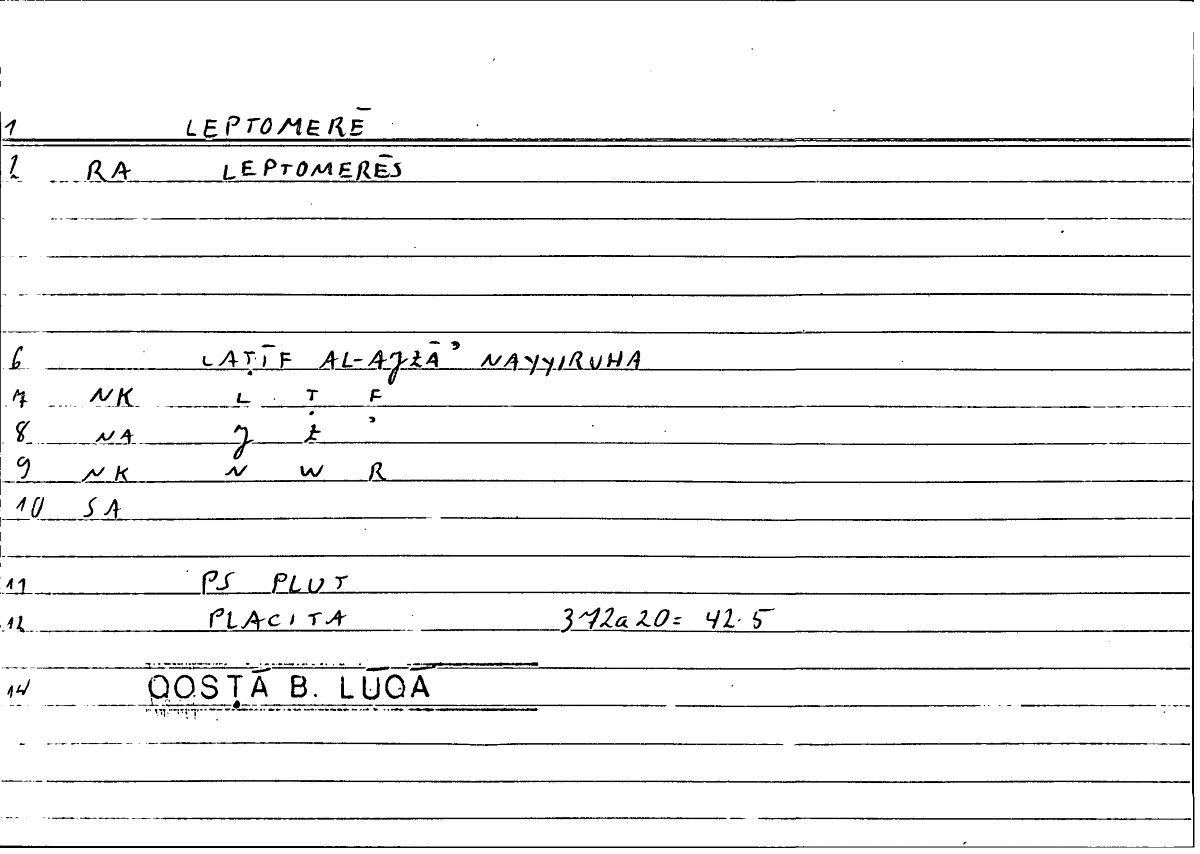 1 LEPTOMERĒ
2 RA LEPTOMERĒS
6 LAṬĪF AL-AJZĀʾ NAYYIRUHA
7 NK L Ṭ F
8 NA J Z ʾ
9 NK N W R
10 SA
11 PS PLUT
12 PLACITA 372a20= 42.5
14 QOSṬĀ B. LŪQĀ